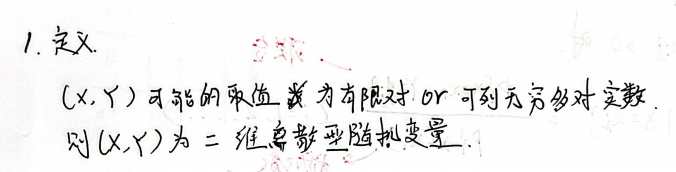 1. 定义.
(X, Y) 可能的取值为有限对 or 可列无穷多对实数.
则(X,Y)为二维离散型随机变量.